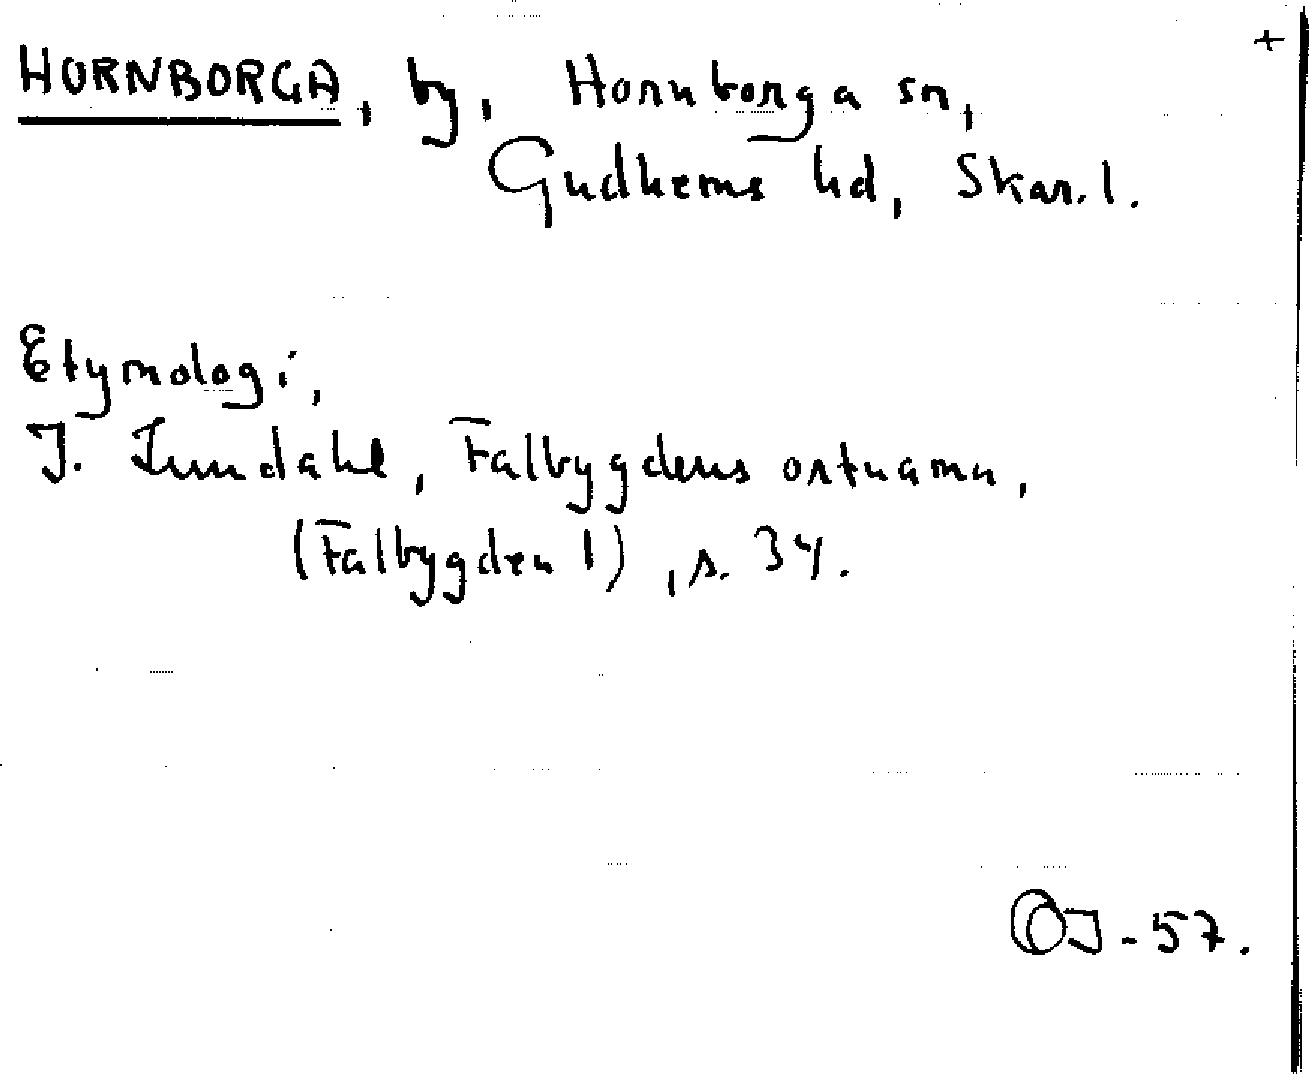 +
HORNBORGA, by, Hornborga sn,
Gudhems hd, Skar. l.
Etymologi,
J. Lundahl, Falbygdens ortnamn,
(Falbygden 1), s. 34.
OJ - 57.